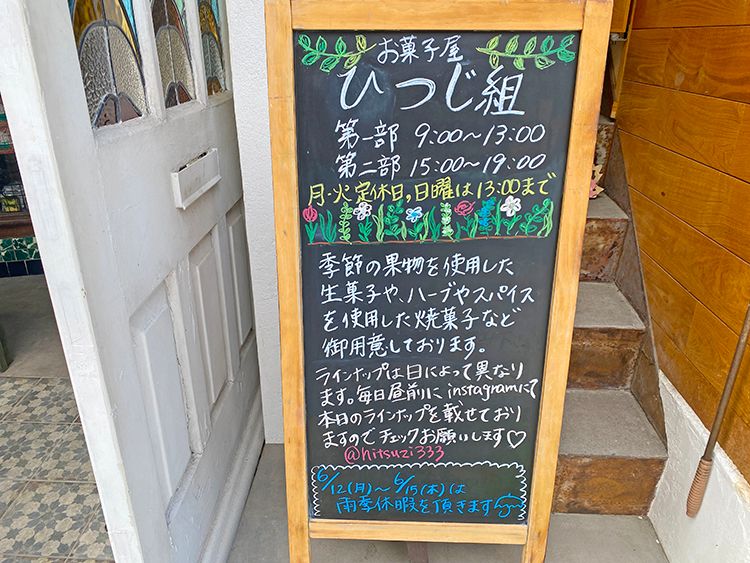 お菓子屋
ひつじ組
第一部 9:00〜13:00
第二部 15:00〜19:00
月・火定休日,日曜は13:00まで
季節の果物を使用した
生菓子や、ハーブやスパイス
を使用した焼菓子など
御用意しております。
ラインナップは日によって異なり
ます。毎日昼前にinstagramにて
本日のラインナップを載せており
ますのでチェックお願いします♡
@hitsuzi333
6/12(月)〜6/15(木)は
雨季休暇を頂きます